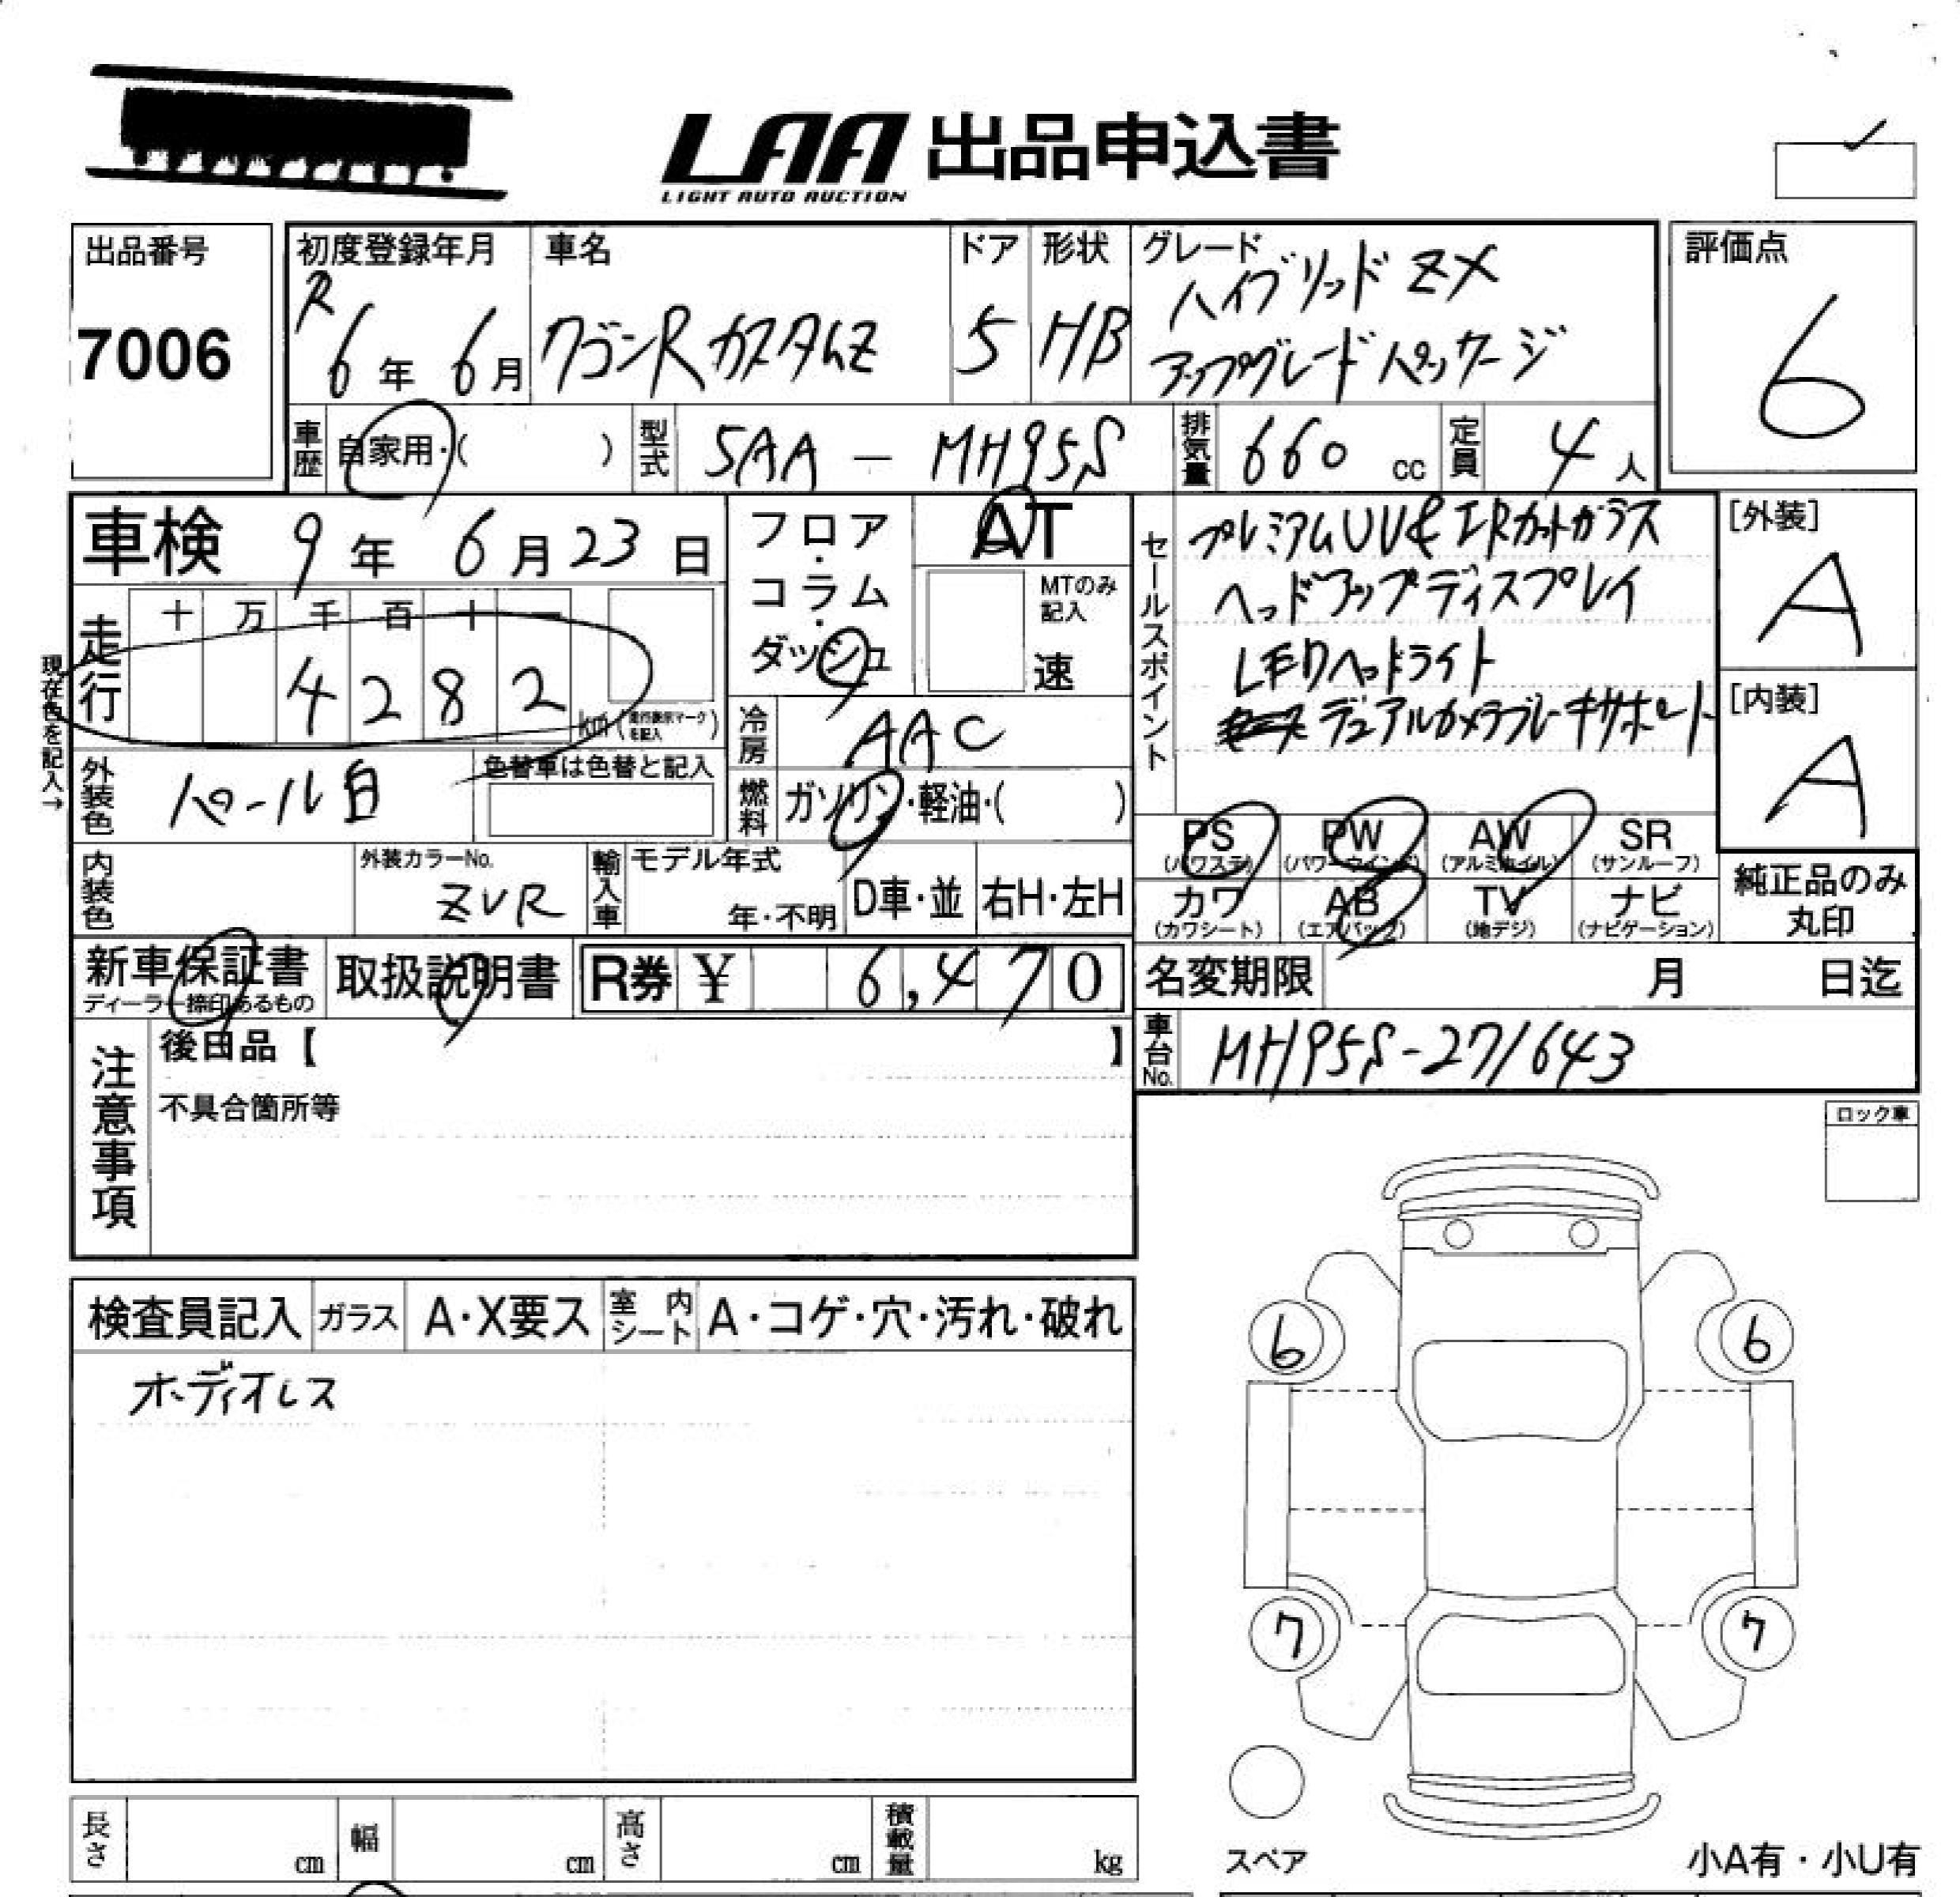 LAA 出品申込書
LIGHT AUTO AUCTION
出品番号
7006
初度登録年月
R6年 6月
車名
ワゴンRカスタムZ
ドア
5
形状
HB
グレード
ハイブリッドZX
アップグレードパッケージ
評価点
6
車歴 自家用・( )
型式 5AA - MH95S
排気量 660 cc
定員 4人
車検 9年 6月 23日
走行
十 万 千 百 十 一
4282
km(走行表示マークを記入)
現在色を記入→
フロア・コラム・ダッシュ
AT
MTのみ記入
速
冷房 AAC
燃料 ガソリン・軽油・( )
セールスポイント
プレミアムUV&IRカットガラス
ヘッドアップディスプレイ
LEDヘッドライト
デュアルカメラブレーキサポート
[外装]
A
[内装]
A
外装色 パール白
色替車は色替と記入
内装色
外装カラーNo.
ZVR
輸入車
モデル年式
年・不明
D車・並
右H・左H
PS
(パワステ)
PW
(パワーウインド)
AW
(アルミホイル)
SR
(サンルーフ)
カワ
(カワシート)
AB
(エアバッグ)
TV
(地デジ)
ナビ
(ナビゲーション)
純正品のみ
丸印
新車保証書
ディーラー捺印あるもの
取扱説明書
R券 ¥ 6,470
名変期限 月 日迄
車台No. MH95S-271643
注意事項
後日品【 】
不具合箇所等
ロック車
検査員記入
ガラス
A・X要ス
室内シート
A・コゲ・穴・汚れ・破れ
オーディオレス
6
6
7
7
長さ cm
幅 cm
高さ cm
積載量 kg
スペア
小A有・小U有